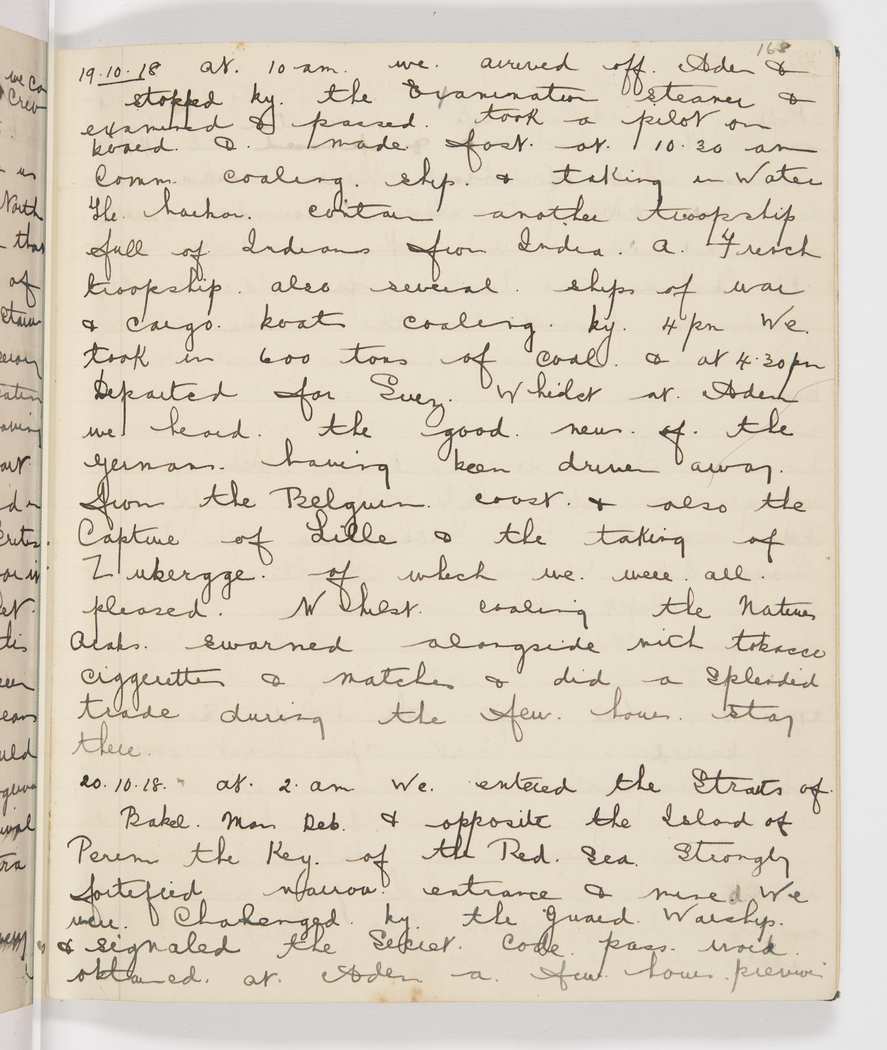 168
19.10.18 at. 10 am. we. arrived off. Aden &
stopped by. the Examination steamer &
examined & passed. took a pilot on
board. &. made fast. at. 10.30 am
Comm. coaling. ship. & taking in Water
The. harbor. contain another troopship
full of Indians from India. A. French
troopship. also several. ships of war
& cargo. boats coaling. by. 4 pm We.
took in 600 tons of coal. & at 4.30 pm
Departed for Suez. Whilst at. Aden
we heard. the good. news. of. the
germans. having been driven away.
from the Belguim. coast. & also the
Capture of Lille & the taking of
Zubergge. of which we. were. all.
pleased. Whilst. coaling the Natives
Arabs. swarned alongside with tobacco
ciggerettes & matches & did a splendid
trade during the few. hours. stay
there.
20.10.18. at. 2. am We. entered the Straits of.
Babel. Man Deb. & opposite the Island of
Perim the Key. of the Red. Sea. Strongly
fortified narrow. entrance & mined We
were. Chalenged. by. the guard. Warship.
& signaled the Secret. Code. pass. word.
obtained. at. Aden a. few. hours previous